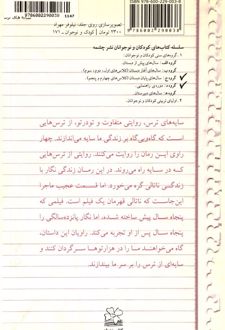 ISBN 978-600-229-003-8
9786002290038
تصویرسازی روی جلد: نیلوفر مهرزاد
۲۳۰۰ تومان | کودک و نوجوان ـ ۱۷۱
سلسله کتاب‌های کودکان و نوجوانان نشر چشمه
۱. گروه‌های سنی کودکان و نوجوانان:
گروه الف: سال‌های پیش از دبستان
گروه ب: سال‌های آغاز دبستان (کلاس‌های اول، دوم، سوم)
گروه ج: سال‌های پایان دبستان (کلاس‌های چهارم و پنجم)
گروه د: دوره‌ی راهنمایی
گروه ه: سال‌های دبیرستان
۲. اولیای تربیتی کودکان و نوجوانان
سایه‌های ترس، روایتی متفاوت و تودرتو، از ترس‌هایی
است که گاه‌وبی‌گاه بر زندگی ما سایه می‌اندازند. چهار
راوی این رمان را روایت می‌کنند. روایتی از ترس‌هایی
که در سایه راه می‌روند. در این رمان زندگی نگار با
زندگی ناتالی گره می‌خورد. اما قسمت عجیب ماجرا
این‌جاست که ناتالی قهرمان یک فیلم است. فیلمی که
پنجاه سال پیش ساخته شده، اما نگار پانزده‌سالگی را
پنجاه سال پس از او تجربه می‌کند. راویان این داستان،
گاه می‌خواهند ما را در هزارتوها سرگردان کنند و
سایه‌ای از ترس را بر سر ما بیندازند.